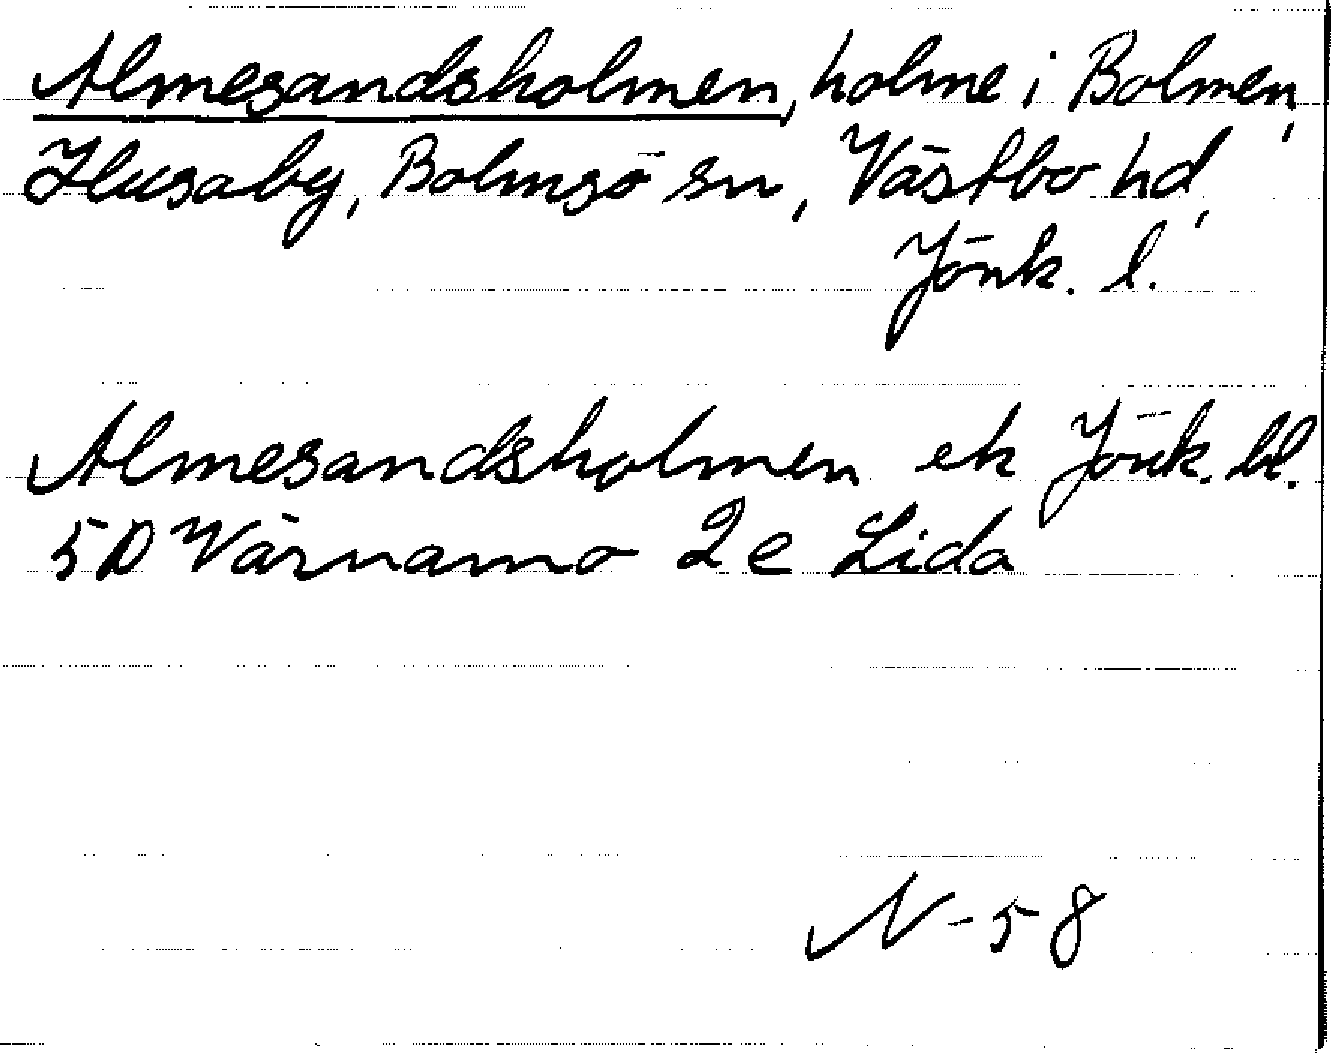 Almesandsholmen, holme i Bolmen,
Husaby, Bolmsö sn, Västbo hd,
Jönk. l.
Almesandsholmen ek Jönk. bl.
5D Värnamo 2e Lida
N-58